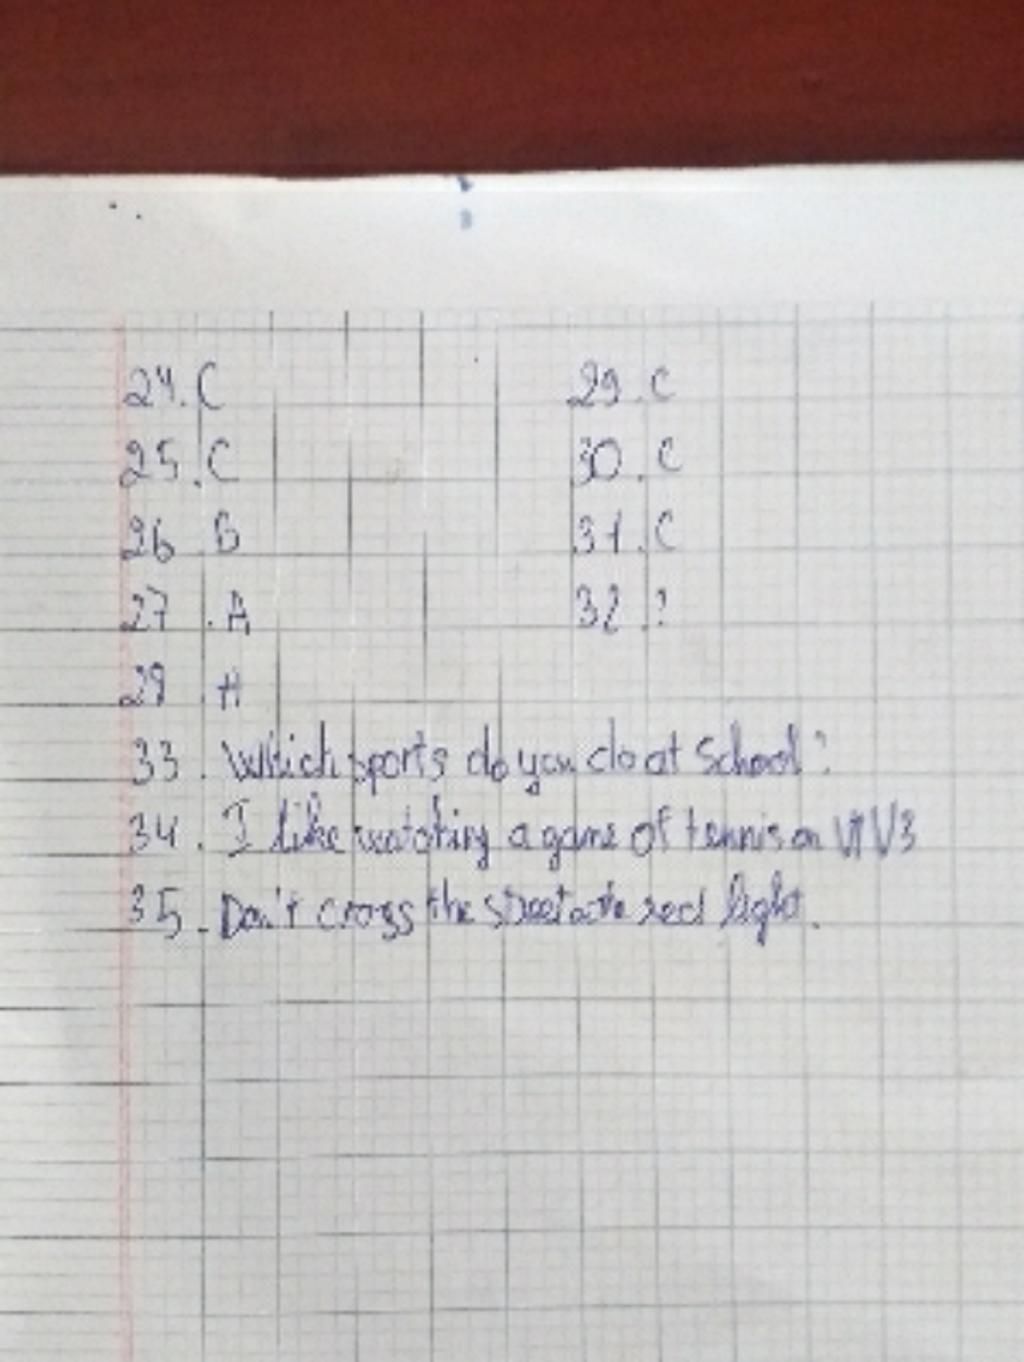 24. C 29. C
25. C 30. C
26. B 31. C
27. A 32. ?
28. A
33. Which sports do you do at School?
34. I like watching a game of tennis on VTV3
35. Don't cross the street at the red light.